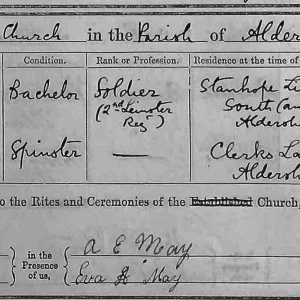 Church in the Parish of Alders
Condition. Rank or Profession. Residence at the time of
Bachelor Soldier Stanhope Li
(2nd Leinster South Cam
Regt) Aldersh
Spinster — Clerks La
Aldersh
to the Rites and Ceremonies of the Established Church,
in the
Presence
of us,
A E May
Eva May